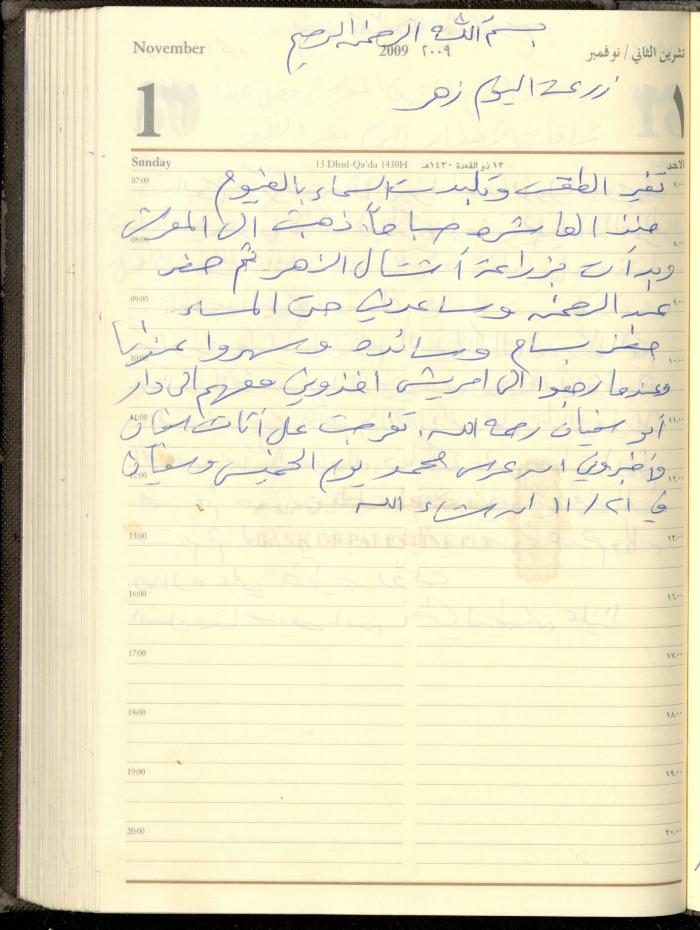 بسم الله الرحمن الرحيم
November 2009 ٢٠٠٩ تشرين الثاني / نوفمبر
زرعت اليوم زهر
1 ١
Sunday 13 Dhul-Qa'da 1430H ١٣ ذو القعدة ١٤٣٠هـ الاحد
07:00 ٧:٠٠
تغير الطقس وتلبدت السماء بالغيوم
منذ العاشره صباحاً. ذهبت الى المعرش
08:00 ٨:٠٠
وبدأت بزراعة أشتال الزهر ثم حضر
09:00 ٩:٠٠
عبد الرحمن وساعدني حتى المساء.
حضر بسام وسائده وسهروا عندنا
10:00 ١٠:٠٠
وعندما رجعوا الى امريش اخذوني معهم الى دار
11:00 ١١:٠٠
أبو سفيان رحمه الله. تفرجت على أثاث سفيان
وأخبروني ان عرس محمد يوم الخميس وسفيان
12:00 ١٢:٠٠
في ٢١/١١ ان شاء الله
13:00 ١٣:٠٠
BANK OF PALESTINE
16:00 ١٦:٠٠
17:00 ١٧:٠٠
18:00 ١٨:٠٠
19:00 ١٩:٠٠
20:00 ٢٠:٠٠